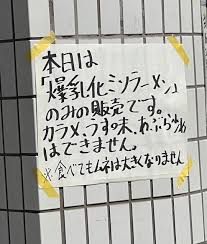 本日は
「爆乳化ミソラーメン」
のみの販売です。
カラメ、うす味、あぶら少なめ
はできません。
※食べてもムネは大きくなりません